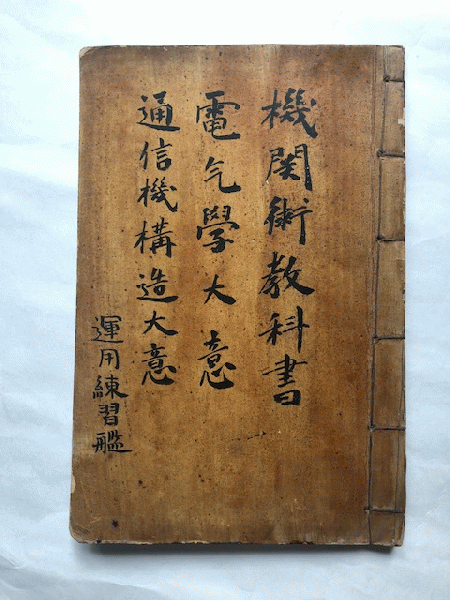 機関術教科書
電气學大意
通信機構造大意
運用練習艦